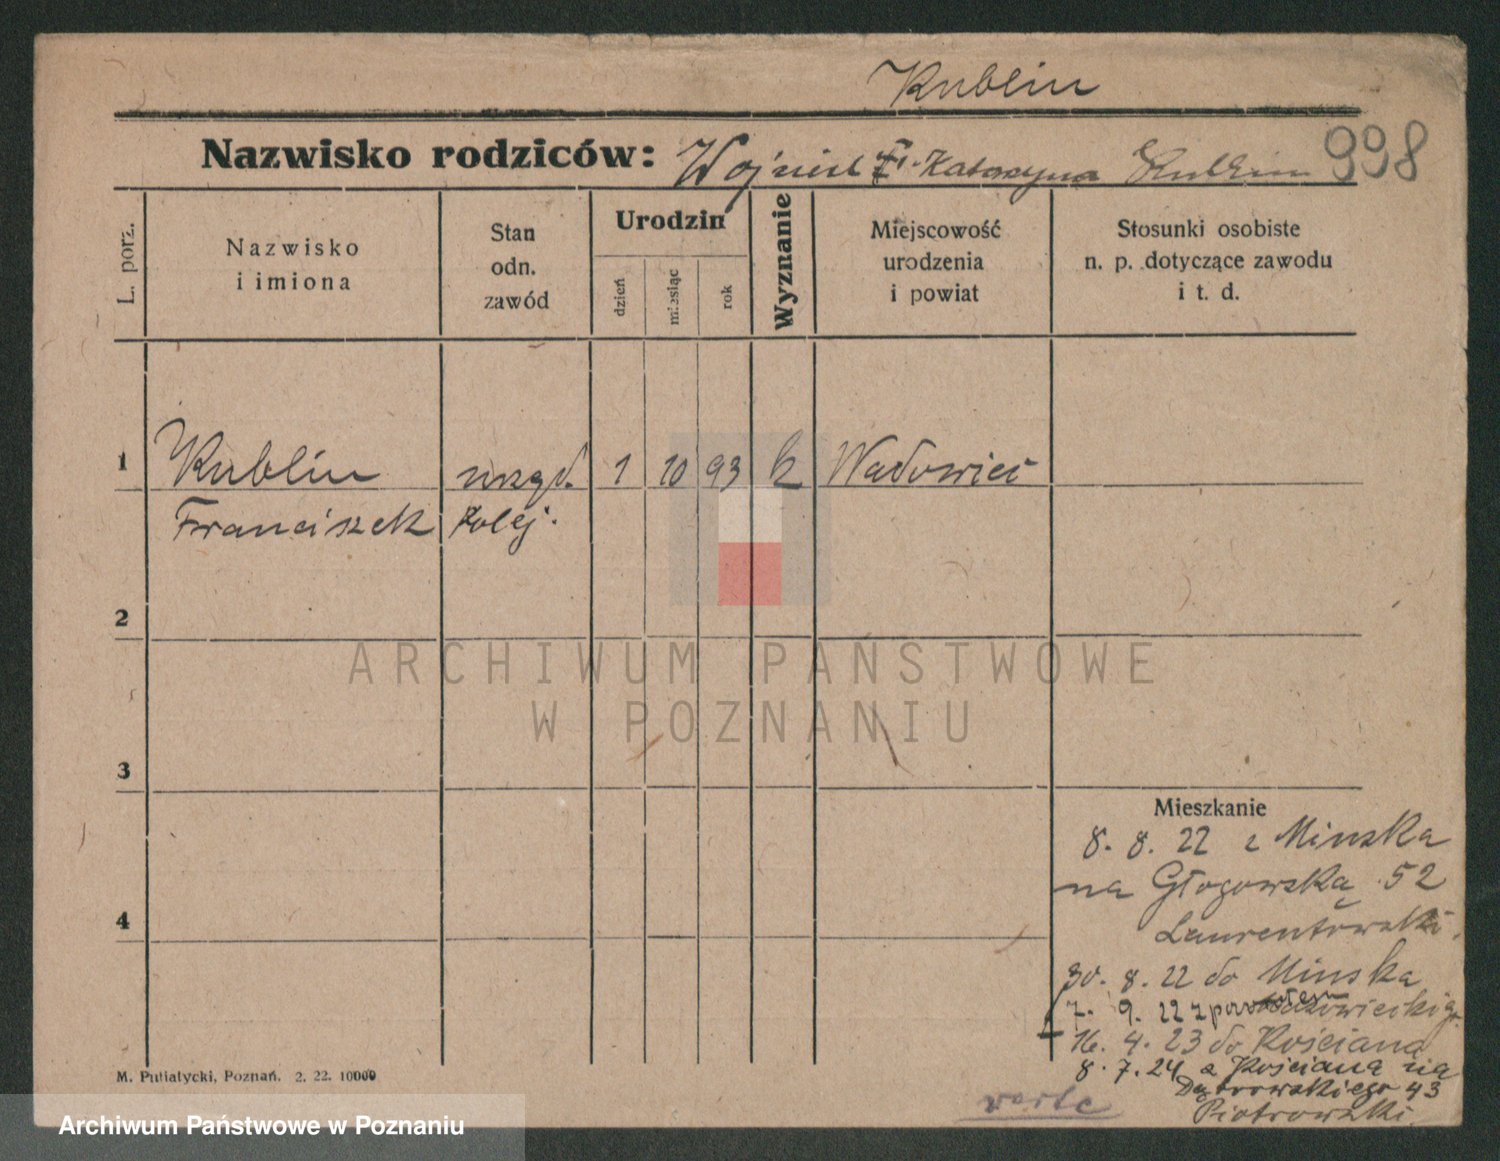 Kublin
Nazwisko rodziców: Katarzyna Kublin 998
L. porz.
Nazwisko
i imiona
Stan
odn.
zawód
Urodzin
dzień
miesiąc
rok
Wyznanie
Miejscowość
urodzenia
i powiat
Stosunki osobiste
n. p. dotyczące zawodu
i t. d.
1 Kublin urzęd. 1 10 93 k Wadowiec
Franciszek kolej.
2
ARCHIWUM PAŃSTWOWE
W POZNANIU
3
Mieszkanie
8. 8. 22 z Minska
na Głogowską 52
4
Laurentowski.
30. 8. 22 do Minska
7. 9. 22 z powrotem
16. 4. 23 do Kościana
8. 7. 24 z Kościana na
Dąbrowskiego 43
Piotrowski.
M. Putiatycki, Poznań. 2. 22. 10000
Archiwum Państwowe w Poznaniu